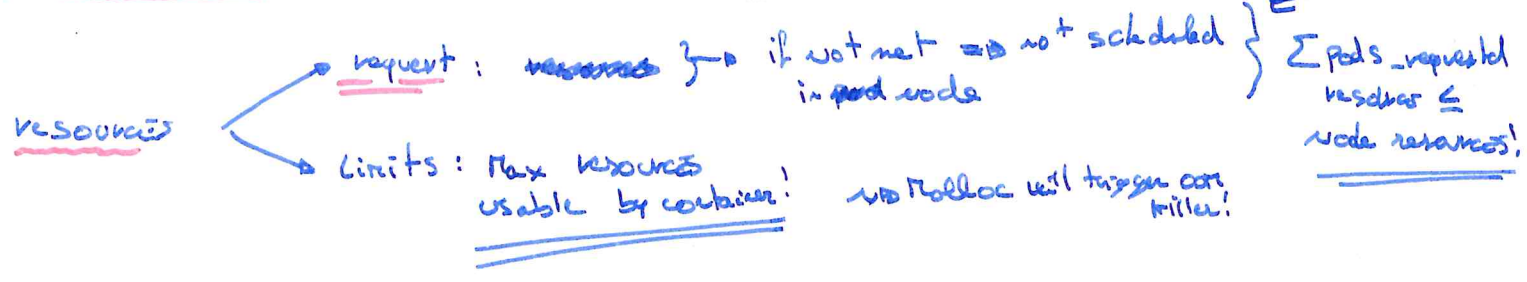 resources
request : } → if not met => not scheduled
in node
} Σ pods_requested
resources ≤
node resources!
Limits : Max resources
usable by container!
=> Malloc will trigger oom
killer!